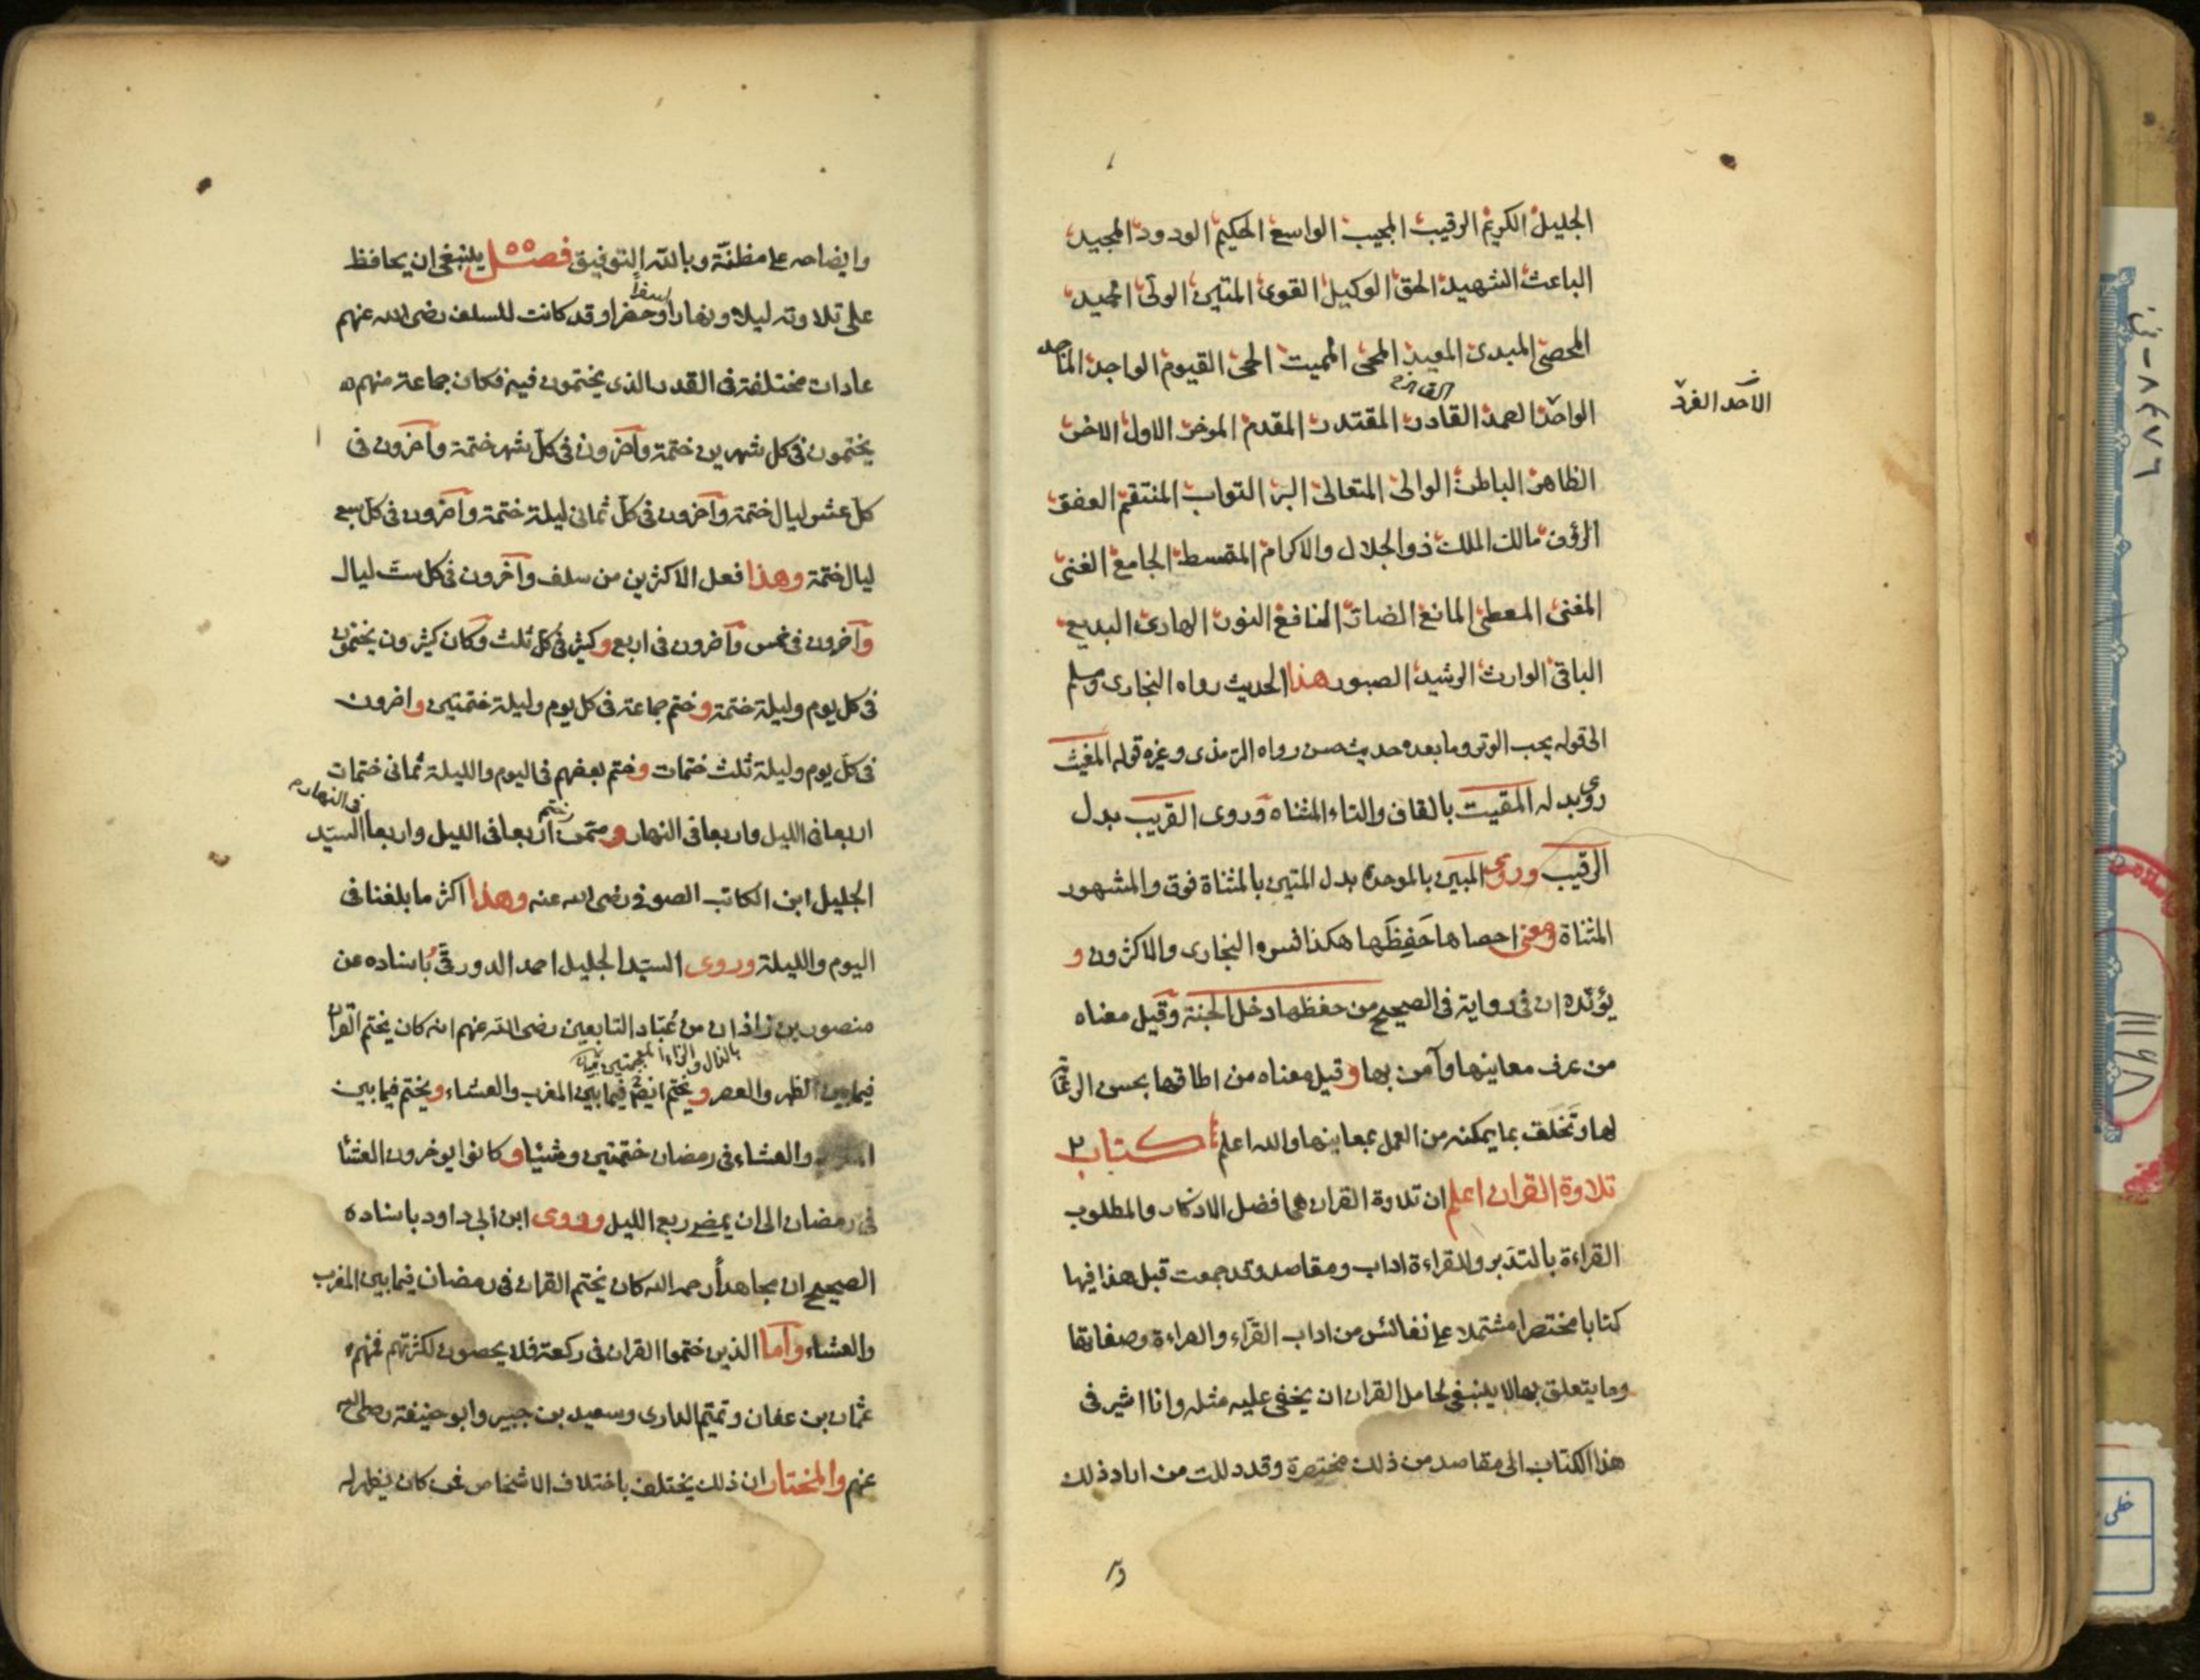 الجليل الكريم الرقيب المجيب الواسع الحكيم الودود المجيد
الباعث الشهيد الحق الوكيل القوى المتين الولى الحميد
المحصى المبدى المعيد المحى المميت الحى القيوم الواجد الماجد
الواحد الصمد القادر المقتدر المقدم الموخر الاول الاخر
الاحد الفرد
الظاهر الباطن الوالى المتعالى البر التواب المنتقم العفو
الرؤف مالك الملك ذو الجلال والاكرام المقسط الجامع الغنى
المغنى المعطى المانع الضار النافع النور الهادى البديع
الباقى الوارث الرشيد الصبور هذا الحديث رواه البخارى ومسلم
الى قوله يحب الوتر وما بعده حديث حسن رواه الترمذى وغيره قوله المغيث
روى بدله المقيت بالقاف والتاء المثناه وروى القريب بدل
الرقيب وروى المبين بالموحدة بدل المتين بالمثناة فوق والمشهور
المثناة ومعنى احصاها حَفِظَها هكذا فسره البخارى والاكثرون و
يؤيده ان فى رواية فى الصحيح من حفظها دخل الجنة وقيل معناه
من عرف معانيها وآمن بها وقيل معناه من اطاقها بحسن الرعاية
لها وتخلق بما يمكنه من العمل بمعانيها والله اعلم كتاب
تلاوة القران اعلم ان تلاوة القران هى افضل الاذكار والمطلوب
القراءة بالتدبر وللقراءة اداب ومقاصد وقد جمعت قبل هذا فيها
كتابا مختصرا مشتملا على نفائس من اداب القرّاء والقراءة وصفاتها
وما يتعلق بها لا ينبغى لحامل القران ان يخفى عليه مثله وانا اشير فى
هذا الكتاب الى مقاصد من ذلك مختصرة وقد دللت من اراد ذلك
وا
وايضاحه على مظنّة وبالله التوفيق فصل ينبغى ان يحافظ
على تلاوته ليلا ونهارا سفرا وحضرا وقد كانت للسلف رضى الله عنهم
عادات مختلفة فى القدر الذى يختمون فيه فكان جماعة منهم
يختمون فى كل شهرين ختمة وآخرون فى كل شهر ختمة وآخرون فى
كل عشر ليال ختمة وآخرون فى كل ثمانى ليلة ختمة وآخرون فى كل سبع
ليال ختمة وهذا فعل الاكثرين من سلف وآخرون فى كل ست ليال
وآخرون فى خمس وآخرون فى اربع وكثير فى كل ثلث وكان كثيرون يختمون
فى كل يوم وليلة ختمة وختم جماعة فى كل يوم وليلة ختمتين واخرون
فى كل يوم وليلة ثلث ختمات وختم بعضهم فى اليوم والليلة ثمانى ختمات
اربعا فى الليل واربعا فى النهار وممن ختم اربعا فى الليل واربعا فى النهار السيّد
الجليل ابن الكاتب الصوفى رضى الله عنه وهذا اكثر ما بلغنا فى
اليوم والليلة وروى السيّد الجليل احمد الدورقى باسناده عن
منصور بن زاذان من عُبّاد التابعين رضى الله عنهم انه كان يختم القران
بالذال والزاء المعجمتين
فيما بين الظهر والعصر ويختم ايضا فيما بين المغرب والعشاء ويختم فيما بين
والعشاء فى رمضان ختمتين وشيئا وكانوا يوخرون العشا
فى رمضان الى ان يمضى ربع الليل وروى ابن ابى داود باسناده
الصحيح ان مجاهدًا رحمه الله كان يختم القران فى رمضان فيما بين المغرب
والعشاء وأما الذين ختموا القران فى ركعة فلا يحصون لكثرتهم فمنهم
عثمان بن عفان وتميم الدارى وسعيد بن جبير وابو حنيفة رضى الله
عنهم والمختار ان ذلك يختلف باختلاف الاشخاص فمن كان يظهر له